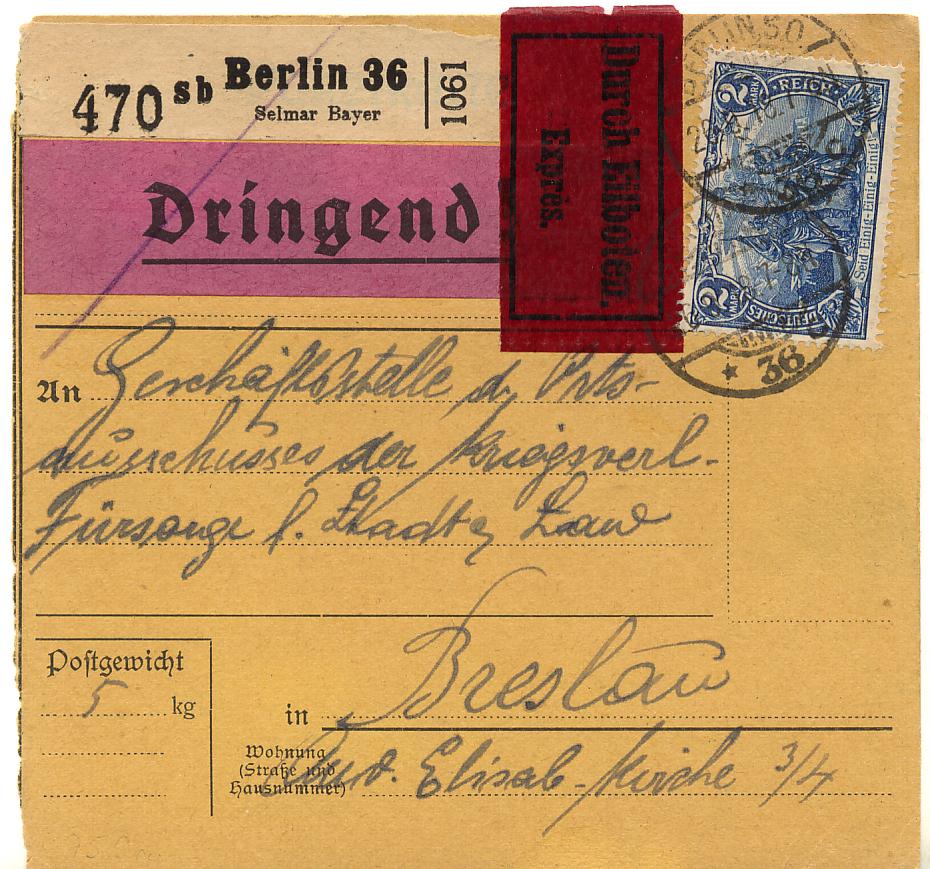 470 sb Berlin 36
Selmar Bayer
1061
Dringend
Durch Eilboten.
Exprès.
BERLIN SO
36
2 MARK REICH
Seid Einig-Einig-Einig!
2 MARK DEUTSCHES
* 36
An Geschäftsstelle d. Orts-
ausschusses der Kriegsverl-
Fürsorge f. Stadt
Postgewicht
5 kg
in Breslau
Wohnung
(Straße und
Hausnummer)
Elisab-kirche 3/4